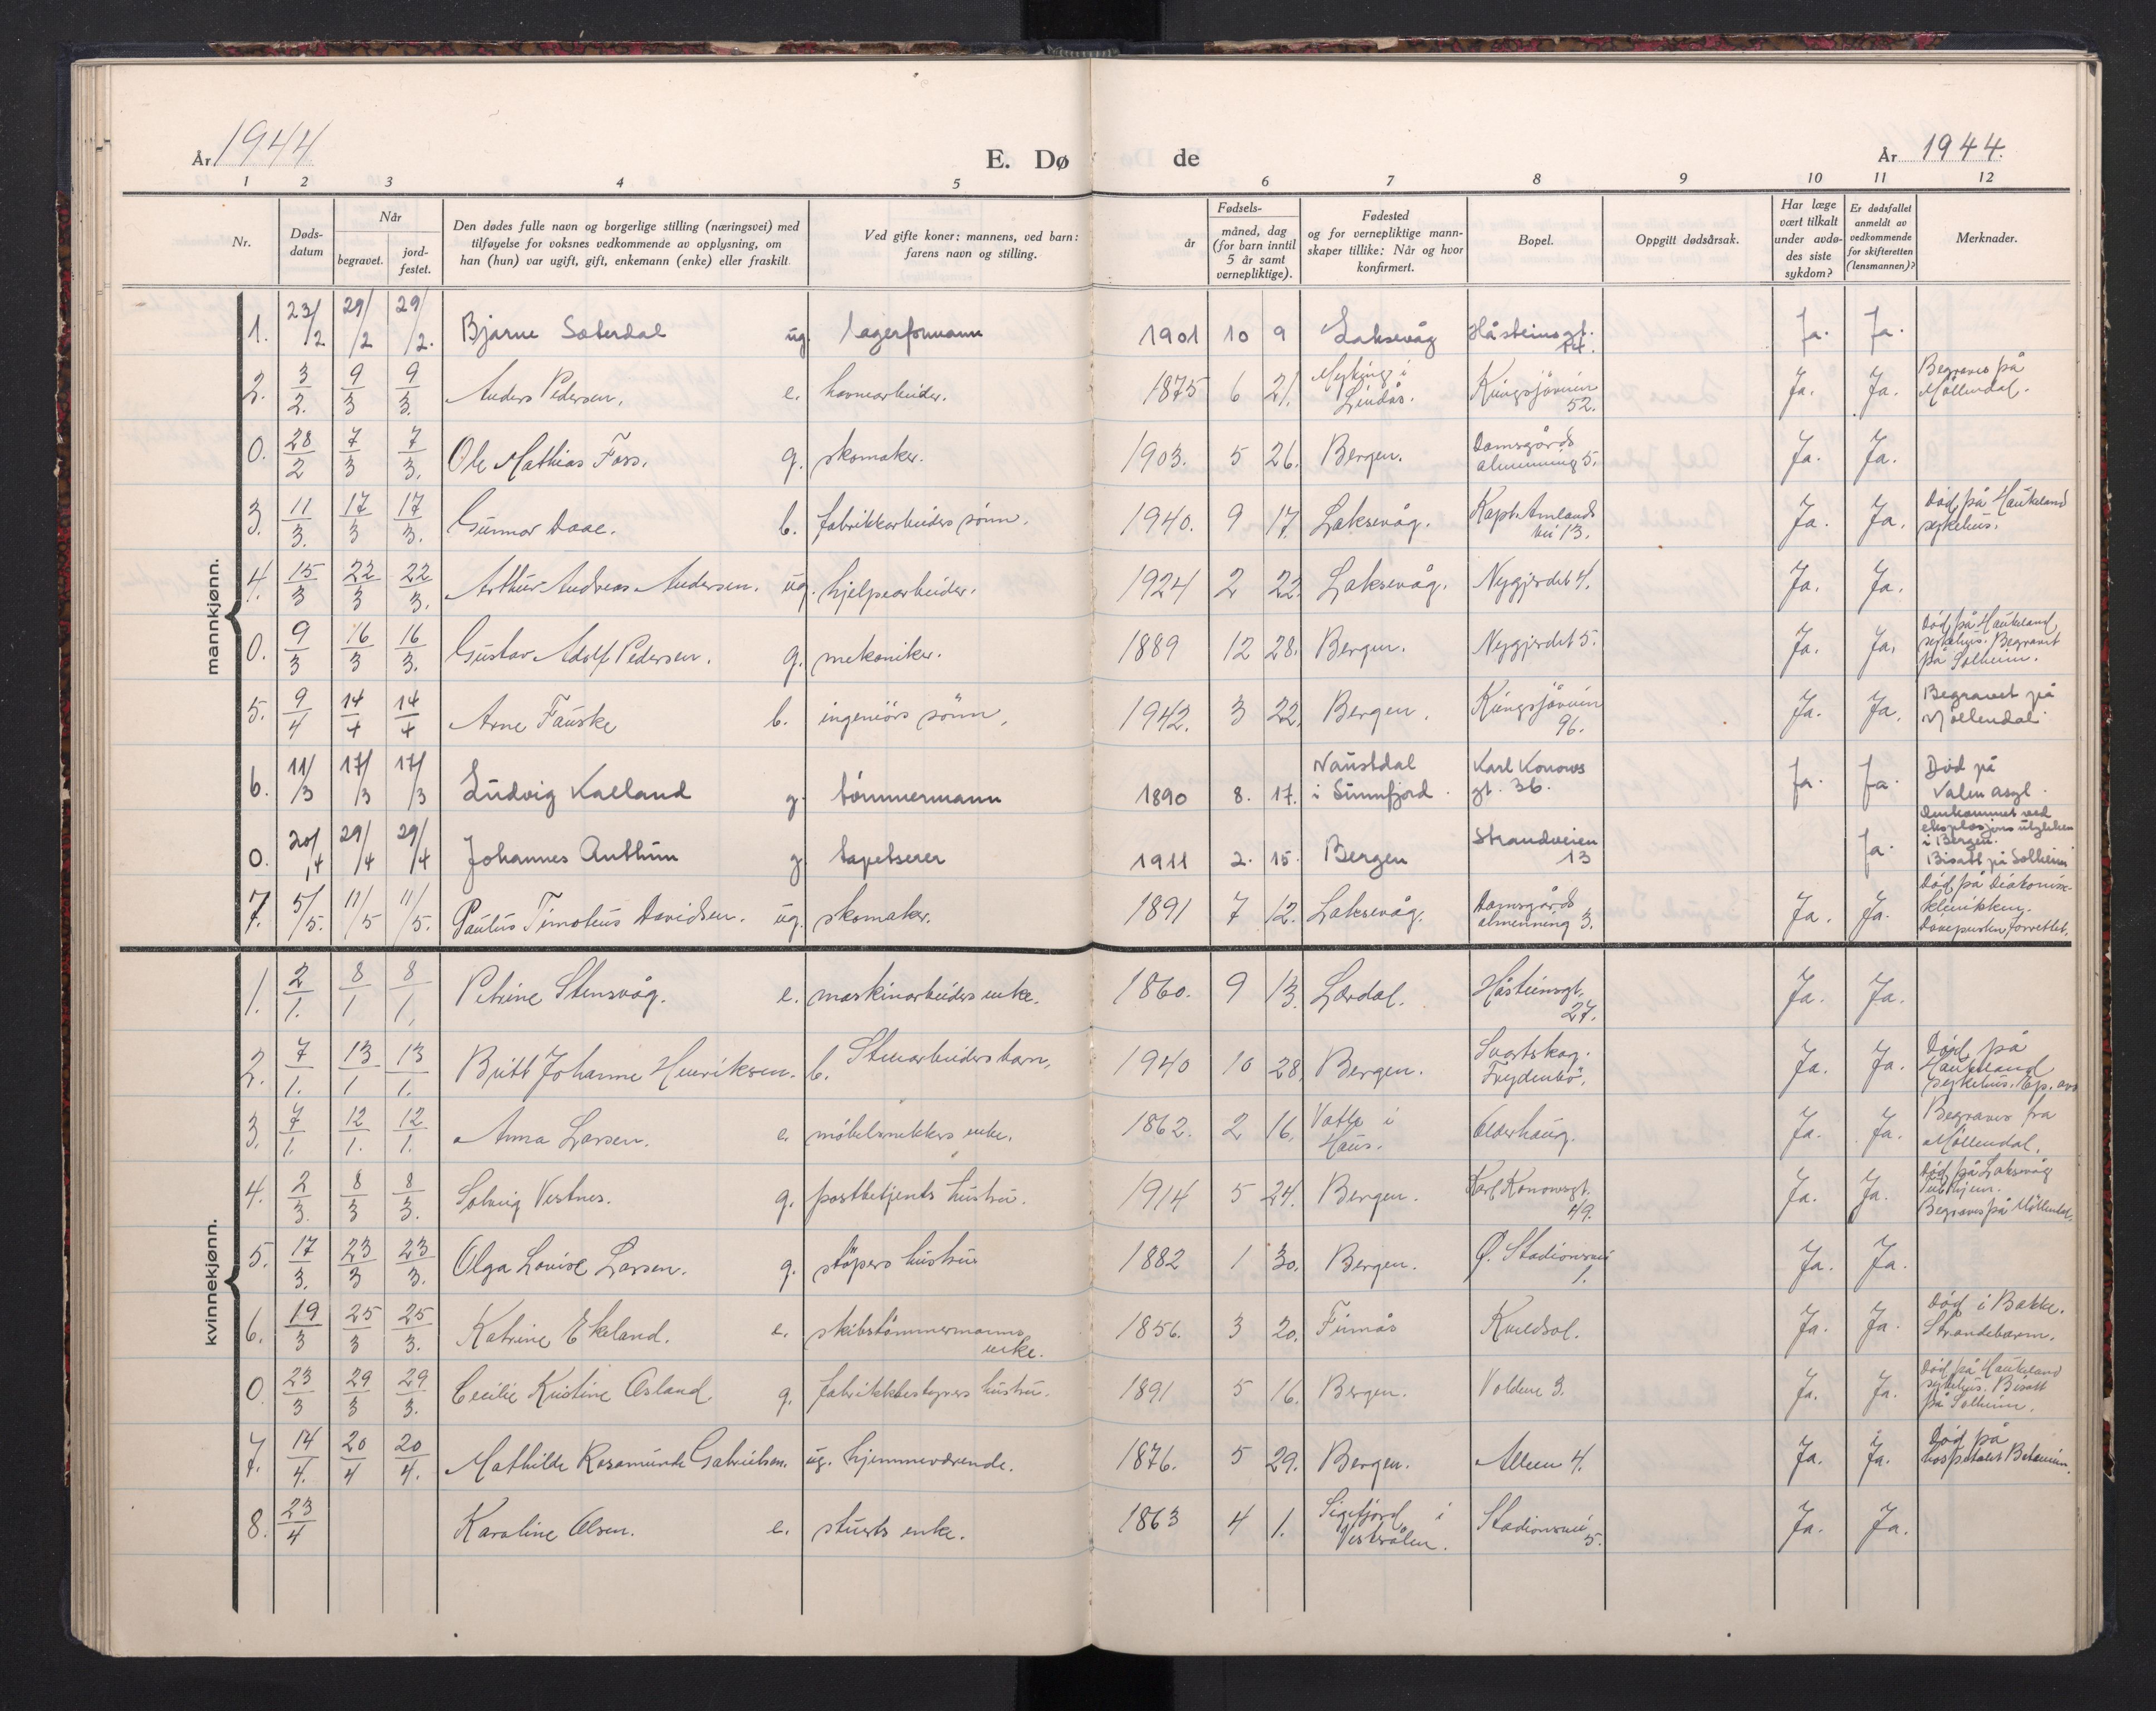 År 1944
E. Dø de
År 1944.
1 2 3 4 5 6 7 8 9 10 11 12
Nr.
Døds-
datum
Når
begravet.
jord-
festet.
Den dødes fulle navn og borgerlige stilling (næringsvei) med
tilføyelse for voksnes vedkommende av opplysning, om
han (hun) var ugift, gift, enkemann (enke) eller fraskilt
Ved gifte koner: mannens, ved barn:
farens navn og stilling.
Fødsels-
år
måned, dag
(for barn inntil
5 år samt
vernepliktige).
Fødested
og for vernepliktige mann-
skaper tillike: Når og hvor
konfirmert.
Bopel.
Oppgitt dødsårsak.
Har læge
vært tilkalt
under avdø-
des siste
sykdom?
Er dødsfallet
anmeldt av
vedkommende
for skifteretten
(lensmannen)?
Merknader.
mannkjønn.
1. 23/2 29/2 29/2. Bjarne Sæterdal ug. lagerformann 1901 10 9 Laksevåg Håsteinsgt. 14. Ja. Ja.
2. 3/2. 9/3 9/3. Anders Pedersen. e. havnearbeider. 1875 6 21. i Lindås. Kringsjåveien 52. Ja. Ja. Begraves på Möllendal.
0. 28/2 7/3 7/3. Ole Mathias Foss. g. skomaker. 1903. 5 26. Bergen. Damsgårds almenning 5. Ja. Ja.
3. 11/3. 17/3 17/3. Gunnar Daae. b. fabrikkarbeiders sönn. 1940. 9 17. Laksevåg. Kapt. Amlands vei 13. Ja. Ja. Död på Haukeland sykehus.
4. 15/3 22/3 22/3. Arthur Andreas Andersen. ug. hjelpearbeider. 1924 2 22. Laksevåg. Nygjerdet 4. Ja. Ja.
0. 9/3 16/3 16/3. Gustav Adolf Pedersen. g. mekaniker. 1889 12 28. Bergen. Nygjerdet 5. Ja. Ja. Död på Haukeland sykehus. Begravet på Solheim.
5. 9/4 14/4 14/4 Arne Fauske b. ingeniörs sönn. 1942. 3 22. Bergen. Kringsjåveien 96. Ja. Ja. Begravet på Möllendal
6. 11/3 17/3 17/3 Ludvig Kalland g. tömmermann 1890 8. 17. Naustdal i Sunnfjord. Karl Konows gt. 36. Ja. Ja. Död på Valen asyl.
0. 20/4 29/4 29/4 Johannes Anthun g tapetserer 1911 2. 15. Bergen Strandveien 13 Ja. Omkommet ved eksplosjons ulykken i Bergen. Bisatt på Solheim
7. 5/5. 11/5 11/5. Paulus Timoteus Davidsen. ug. skomaker. 1891 7 12. Laksevåg. Damsgårds almenning 3. Ja. Ja. Död på Diakonisse-klinikken. Dåvepresten forrettet.
kvinnekjønn.
1. 2/1. 8/1 8/1. Petrine Stensvåg. e. maskinarbeiders enke. 1860. 9 13. Lærdal. Håsteinsgt. 27. Ja. Ja.
2. 7/1. 13/1 13/1. Britt Johanne Henriksen. b. Stuearbeiders barn. 1940 10 28. Bergen. Svartskog. Frydenbö. Ja. Ja. Död på Haukeland sykehus. Ep. avd
3. 7/1. 12/1. 12/1. Anna Larsen. e. möbelsnekkers enke. 1862. 2 16. Vatle i Haus. Olderhaug. Ja. Ja. Begraves fra Möllendal.
4. 2/3. 8/3 8/3. Solveig Vestnes. g. postbetjents hustru. 1914 5 24. Bergen. Karl Konowsgt. 49. Ja. Ja. Död på Laksevåg Tub. hjem. Begraves på Möllendal.
5. 17/3. 23/3 23/3. Olga Lovise Larsen. g. stöpers hustru 1882 1 30. Bergen. Ø. Stadionvei 1. Ja. Ja.
6. 19/3 25/3 25/3. Katrine Ekeland. e. skibstömmermanns enke. 1856. 3 20. Finnås Kveldsol. Ja. Ja. Död i Bakke. Strandebarm.
0. 23/3 29/3 29/3. Cecilie Kristine Åsland g. fabrikkbestyrers hustru. 1891 5 16. Bergen. Volden 3. Ja. Ja. Död på Haukeland sykehus. Bisatt på Solheim.
7. 14/4. 20/4 20/4. Mathilde Rosamunde Gabrielsen. ug. hjemmeværende. 1876. 5 29. Bergen. Alleen 4. Ja. Ja. Död på hospitalet Betanien.
8. 23/4 Karoline Olsen. e. stuerts enke. 1863 4 1. Sigefjord i Vesterålen. Stadionvei 5. Ja. Ja.